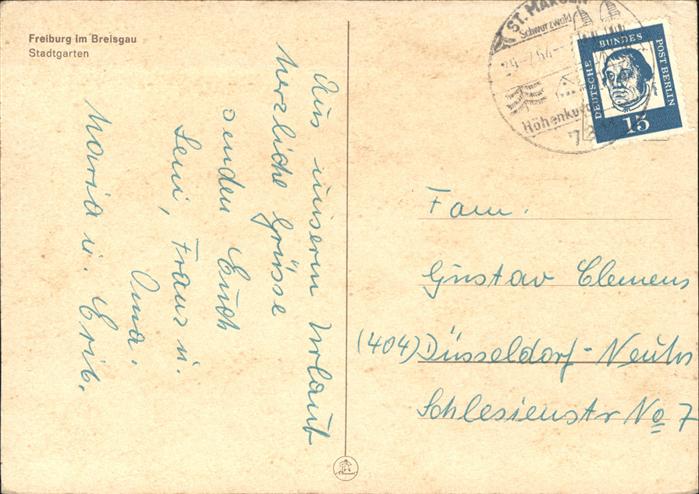 Freiburg im Breisgau
Stadtgarten
Aus unserm Urlaub
herzliche Grüsse
senden Euch
Leni, Franz u.
Oma.
Maria u. Erik.
ST. MÄRGEN
Schwarzwald
Höhenku
DEUTSCHE BUNDESPOST BERLIN
15
Fam.
Gustav Clemens
(404) Düsseldorf-Neuss
Schlesienstr No 7